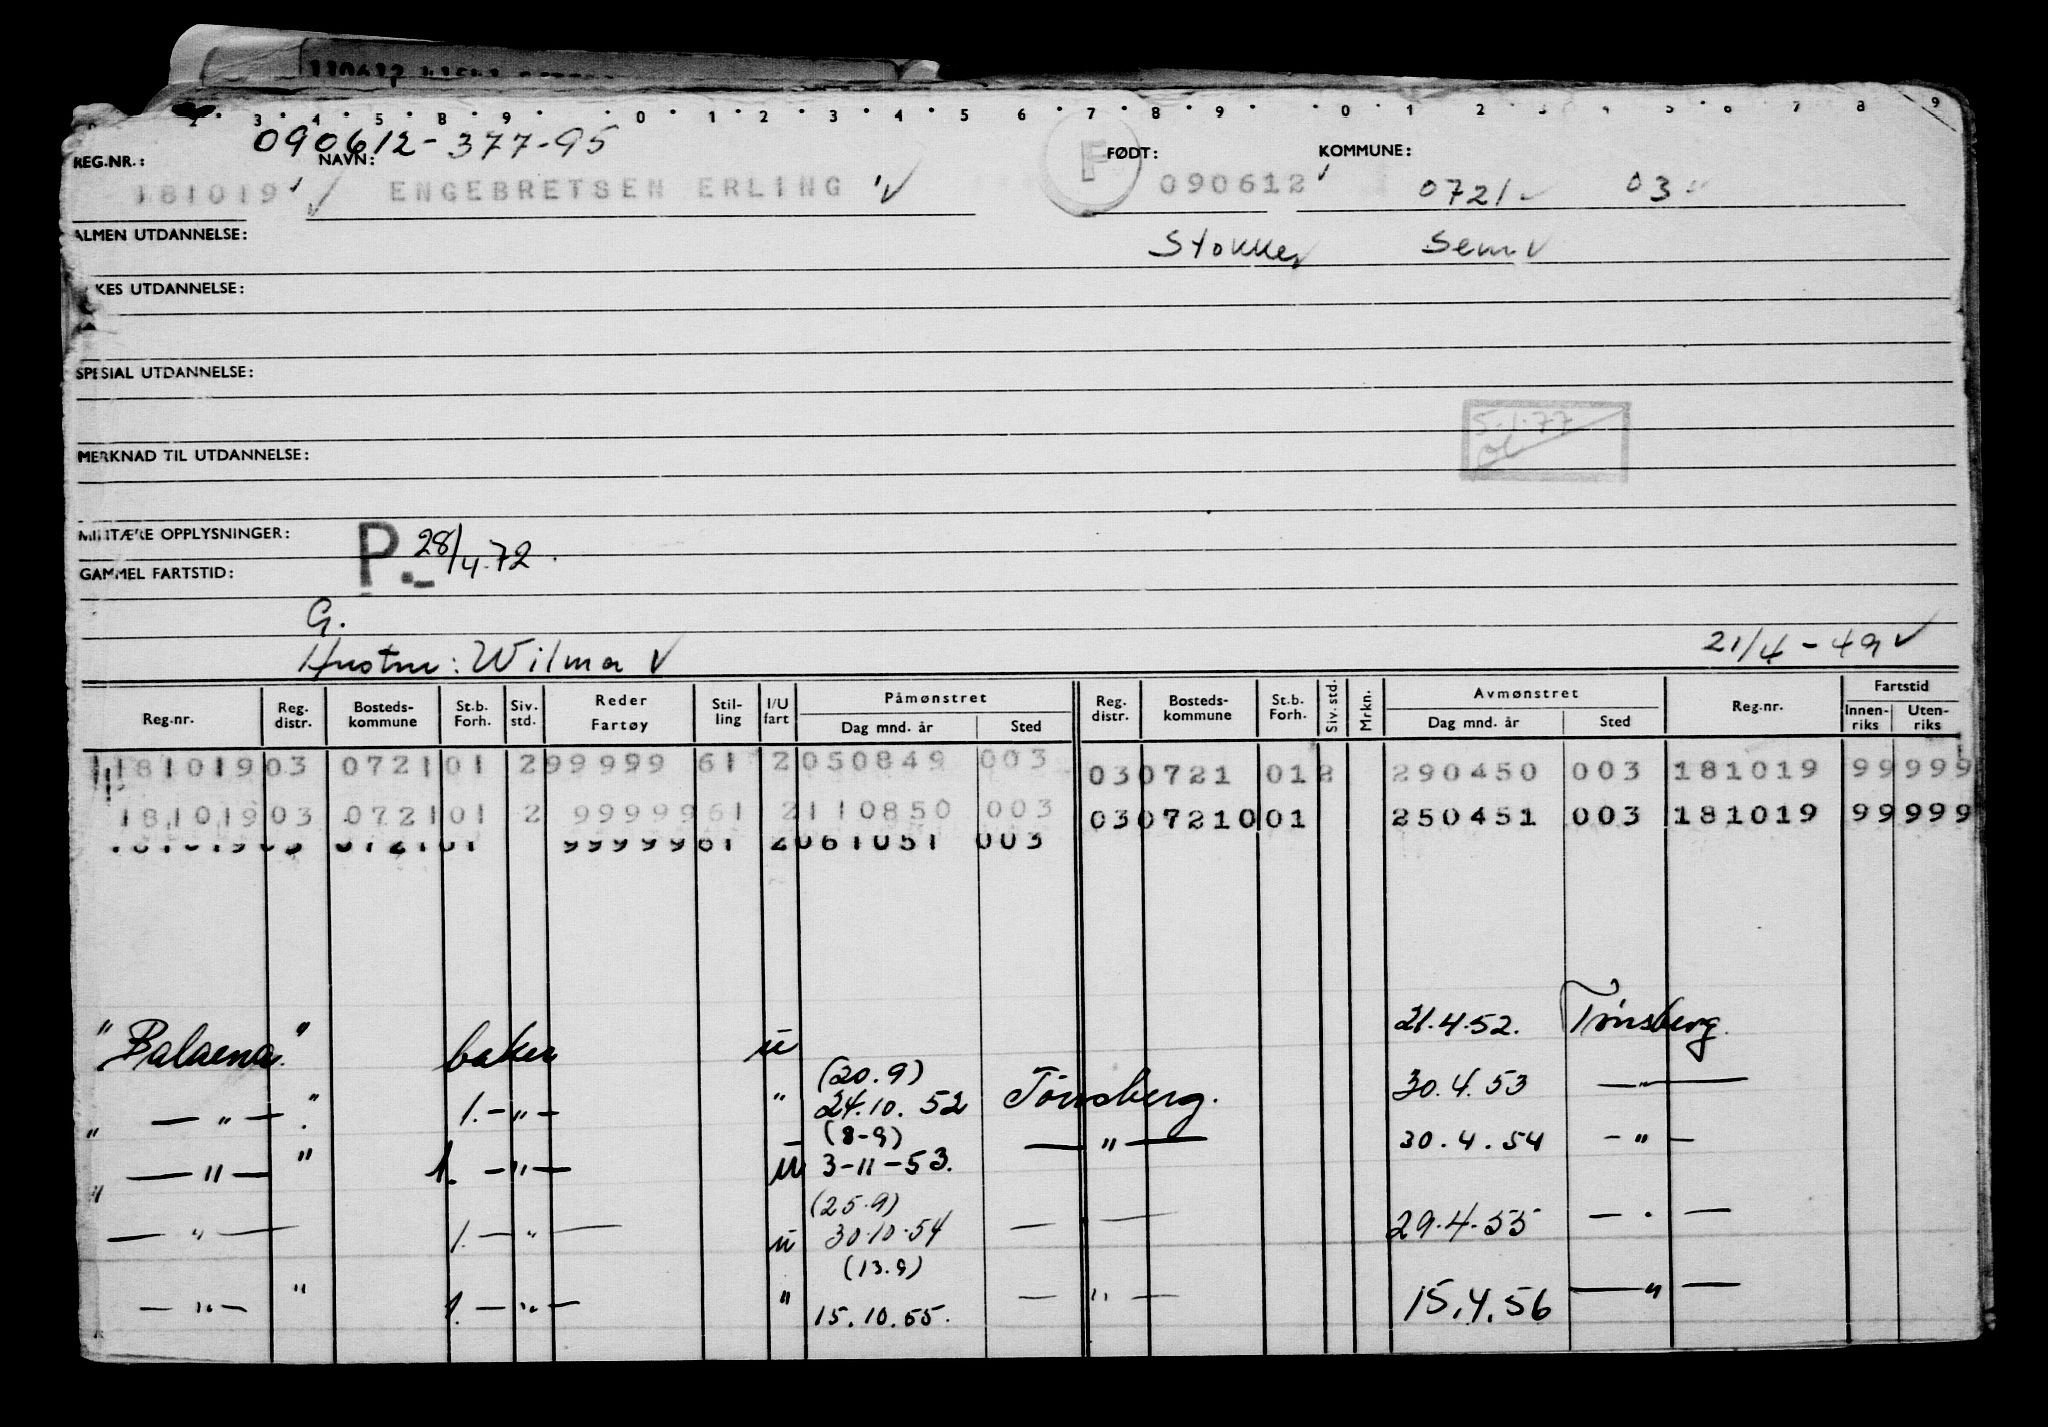 2 · 3 · 4 · 5 · 8 · 9 · · 0 · 1 · 2 · 3 · 4 · 5 6 · 7 · 8 · 9 · · 0 · 1 2 · 3 4 · 5 · 6 · 7 8 9
090612-377-95
REG.NR.: NAVN: FØDT: KOMMUNE:
181019 ✓ ENGEBRETSEN ERLING ✓ F 090612 0721 ✓ 03
ALMEN UTDANNELSE: Stokke ✓ Sem ✓
KES UTDANNELSE:
SPESIAL UTDANNELSE:
5.1.77
MERKNAD TIL UTDANNELSE:
MILITÆRE OPPLYSNINGER: P. 28/4.72.
GAMMEL FARTSTID:
G.
Hustru: Wilma ✓ 21/4-49 ✓
Reg.nr. Reg. distr. Bosteds-kommune St.b. Forh. Siv. std. Reder Fartøy Stil-ling I/U fart Påmønstret Dag mnd. år Sted Reg. distr. Bosteds-kommune St.b. Forh. Siv. std. Mrkn. Avmønstret Dag mnd. år Sted Reg.nr. Fartstid Innen-riks Uten-riks
181019 03 0721 01 2 99999 61 2 050849 003 03 0721 01 2 290450 003 181019 99 999
181019 03 0721 01 2 99999 61 2 110850 003 03 0721 0 01 250451 003 181019 99 999
181019 03 0721 01 99999 61 2 061051 003
21.4.52. Tønsberg.
"Balaena." baker u
(20.9)
— " — " 1. — " — " 24.10. 52 Tønsberg. 30.4.53 — " —
(8-9)
" — " — " 1. — " — u 3-11-53. — " — 30.4.54 — " —
(25.9)
" — " — 1. — " — u 30.10.54 — — 29.4.55 — " —
(13.9)
— " — " 1. — " — " 15.10.55. — " — 15.4.56 — " —